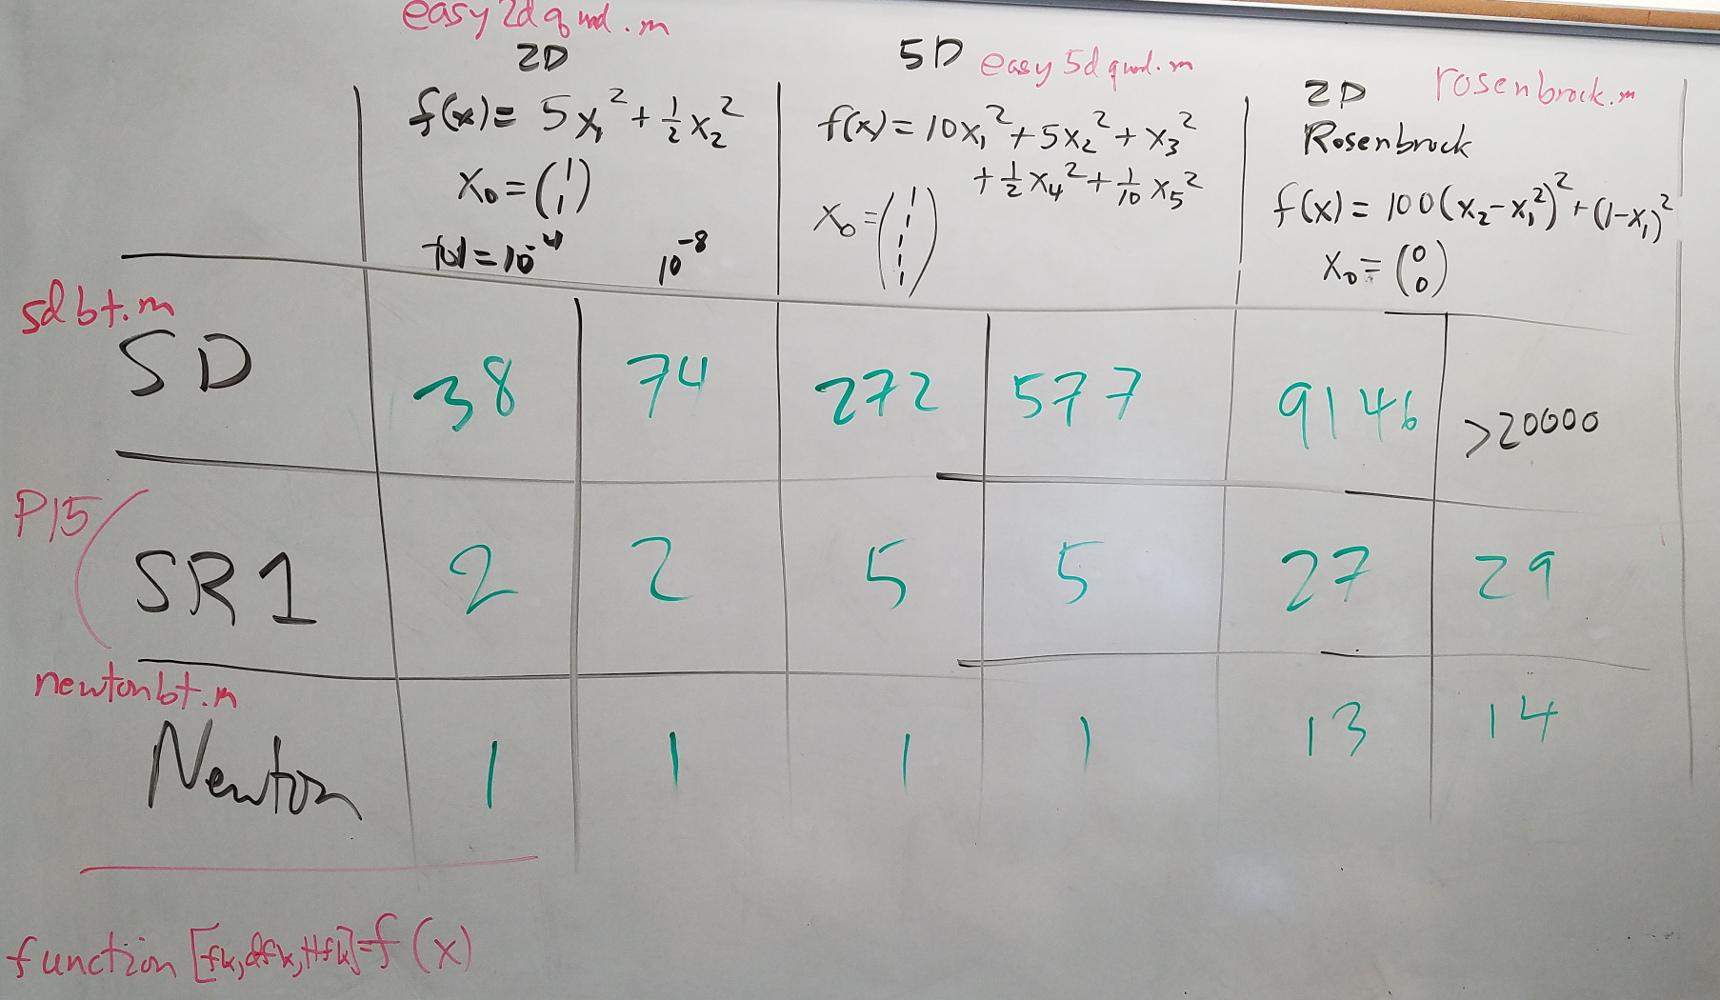 easy2dquad.m
2D
f(x) = 5x₁² + ½x₂²
x₀ = (1 1)
tol = 10⁻⁴ 10⁻⁸
5D easy5dquad.m
f(x) = 10x₁² + 5x₂² + x₃²
+ ½x₄² + 1/10 x₅²
x₀ = (1 1 1 1 1)
2D rosenbrock.m
Rosenbrock
f(x) = 100(x₂-x₁²)² + (1-x₁)²
x₀ = (0 0)
sdbt.m
SD 38 74 272 577 9146 >20000
P15
SR1 2 2 5 5 27 29
newtonbt.m
Newton 1 1 1 1 13 14
function [fk,dfk,Hfk]=f(x)